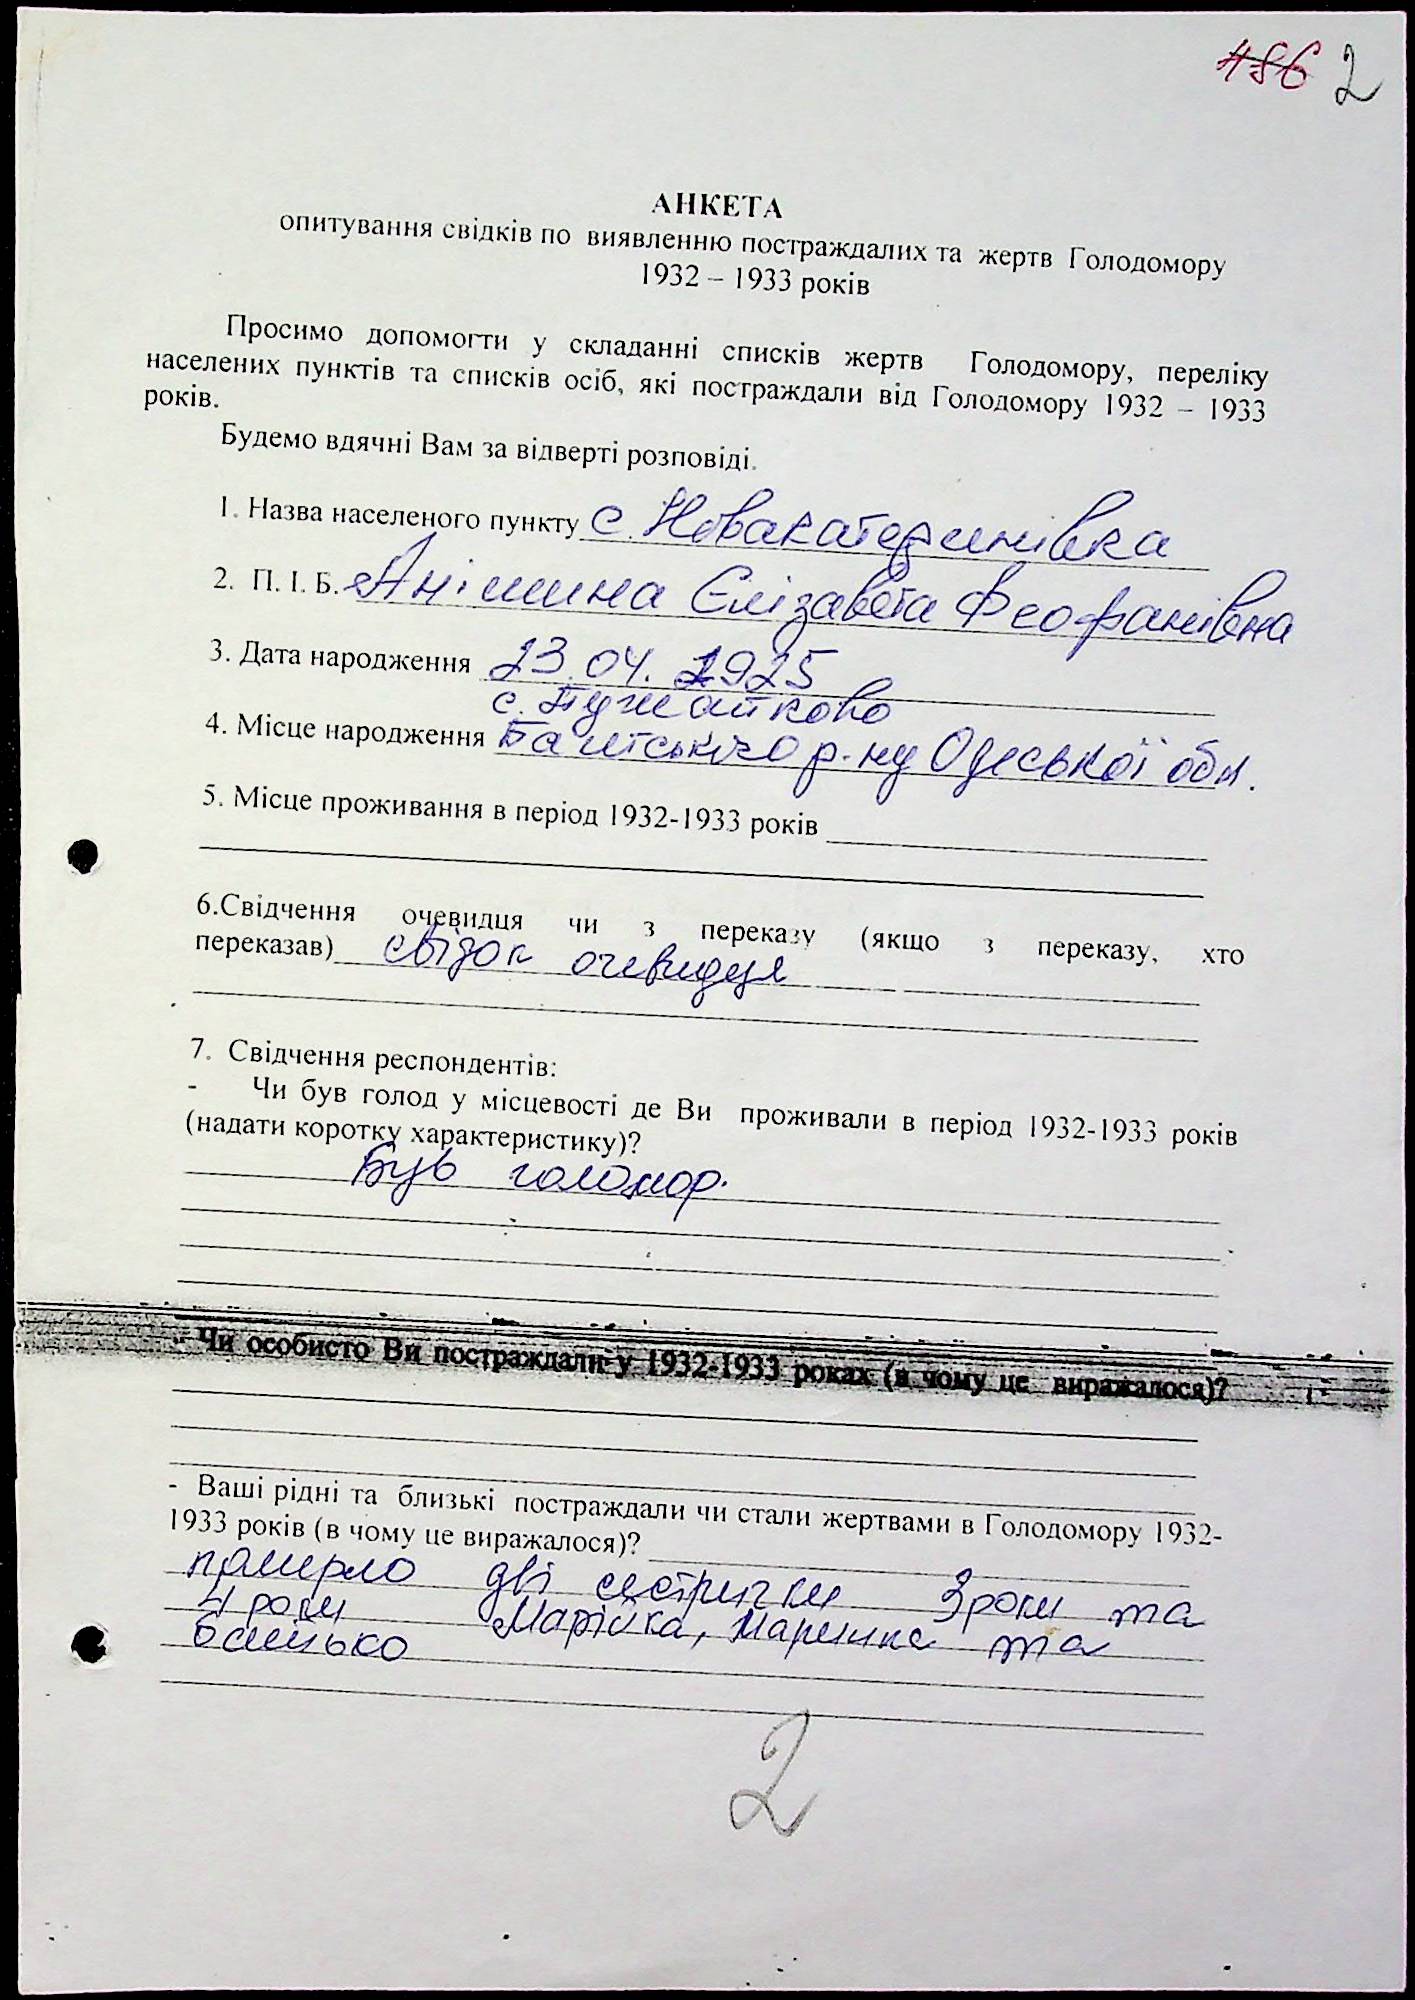 486 2
АНКЕТА
опитування свідків по виявленню постраждалих та жертв Голодомору
1932 – 1933 років
Просимо допомогти у складанні списків жертв Голодомору, переліку
населених пунктів та списків осіб, які постраждали від Голодомору 1932 – 1933
років.
Будемо вдячні Вам за відверті розповіді.
1. Назва населеного пункту с. Новакатеринівка
2. П. І. Б. Анішина Єлізавета Феофанівна
3. Дата народження 23.04.1925
с. Пужайково
4. Місце народження Балтського р-ну Одеської обл.
5. Місце проживання в період 1932-1933 років
6.Свідчення очевидця чи з переказу (якщо з переказу, хто
переказав) свідок очевидця
7. Свідчення респондентів:
- Чи був голод у місцевості де Ви проживали в період 1932-1933 років
(надати коротку характеристику)?
Був голодмор.
- Чи особисто Ви постраждали у 1932-1933 роках (в чому це виражалося)?
- Ваші рідні та близькі постраждали чи стали жертвами в Голодомору 1932-
1933 років (в чому це виражалося)?
померло дві сестрички 3 роки та
4 роки Марійка, Маринка та
батько
2